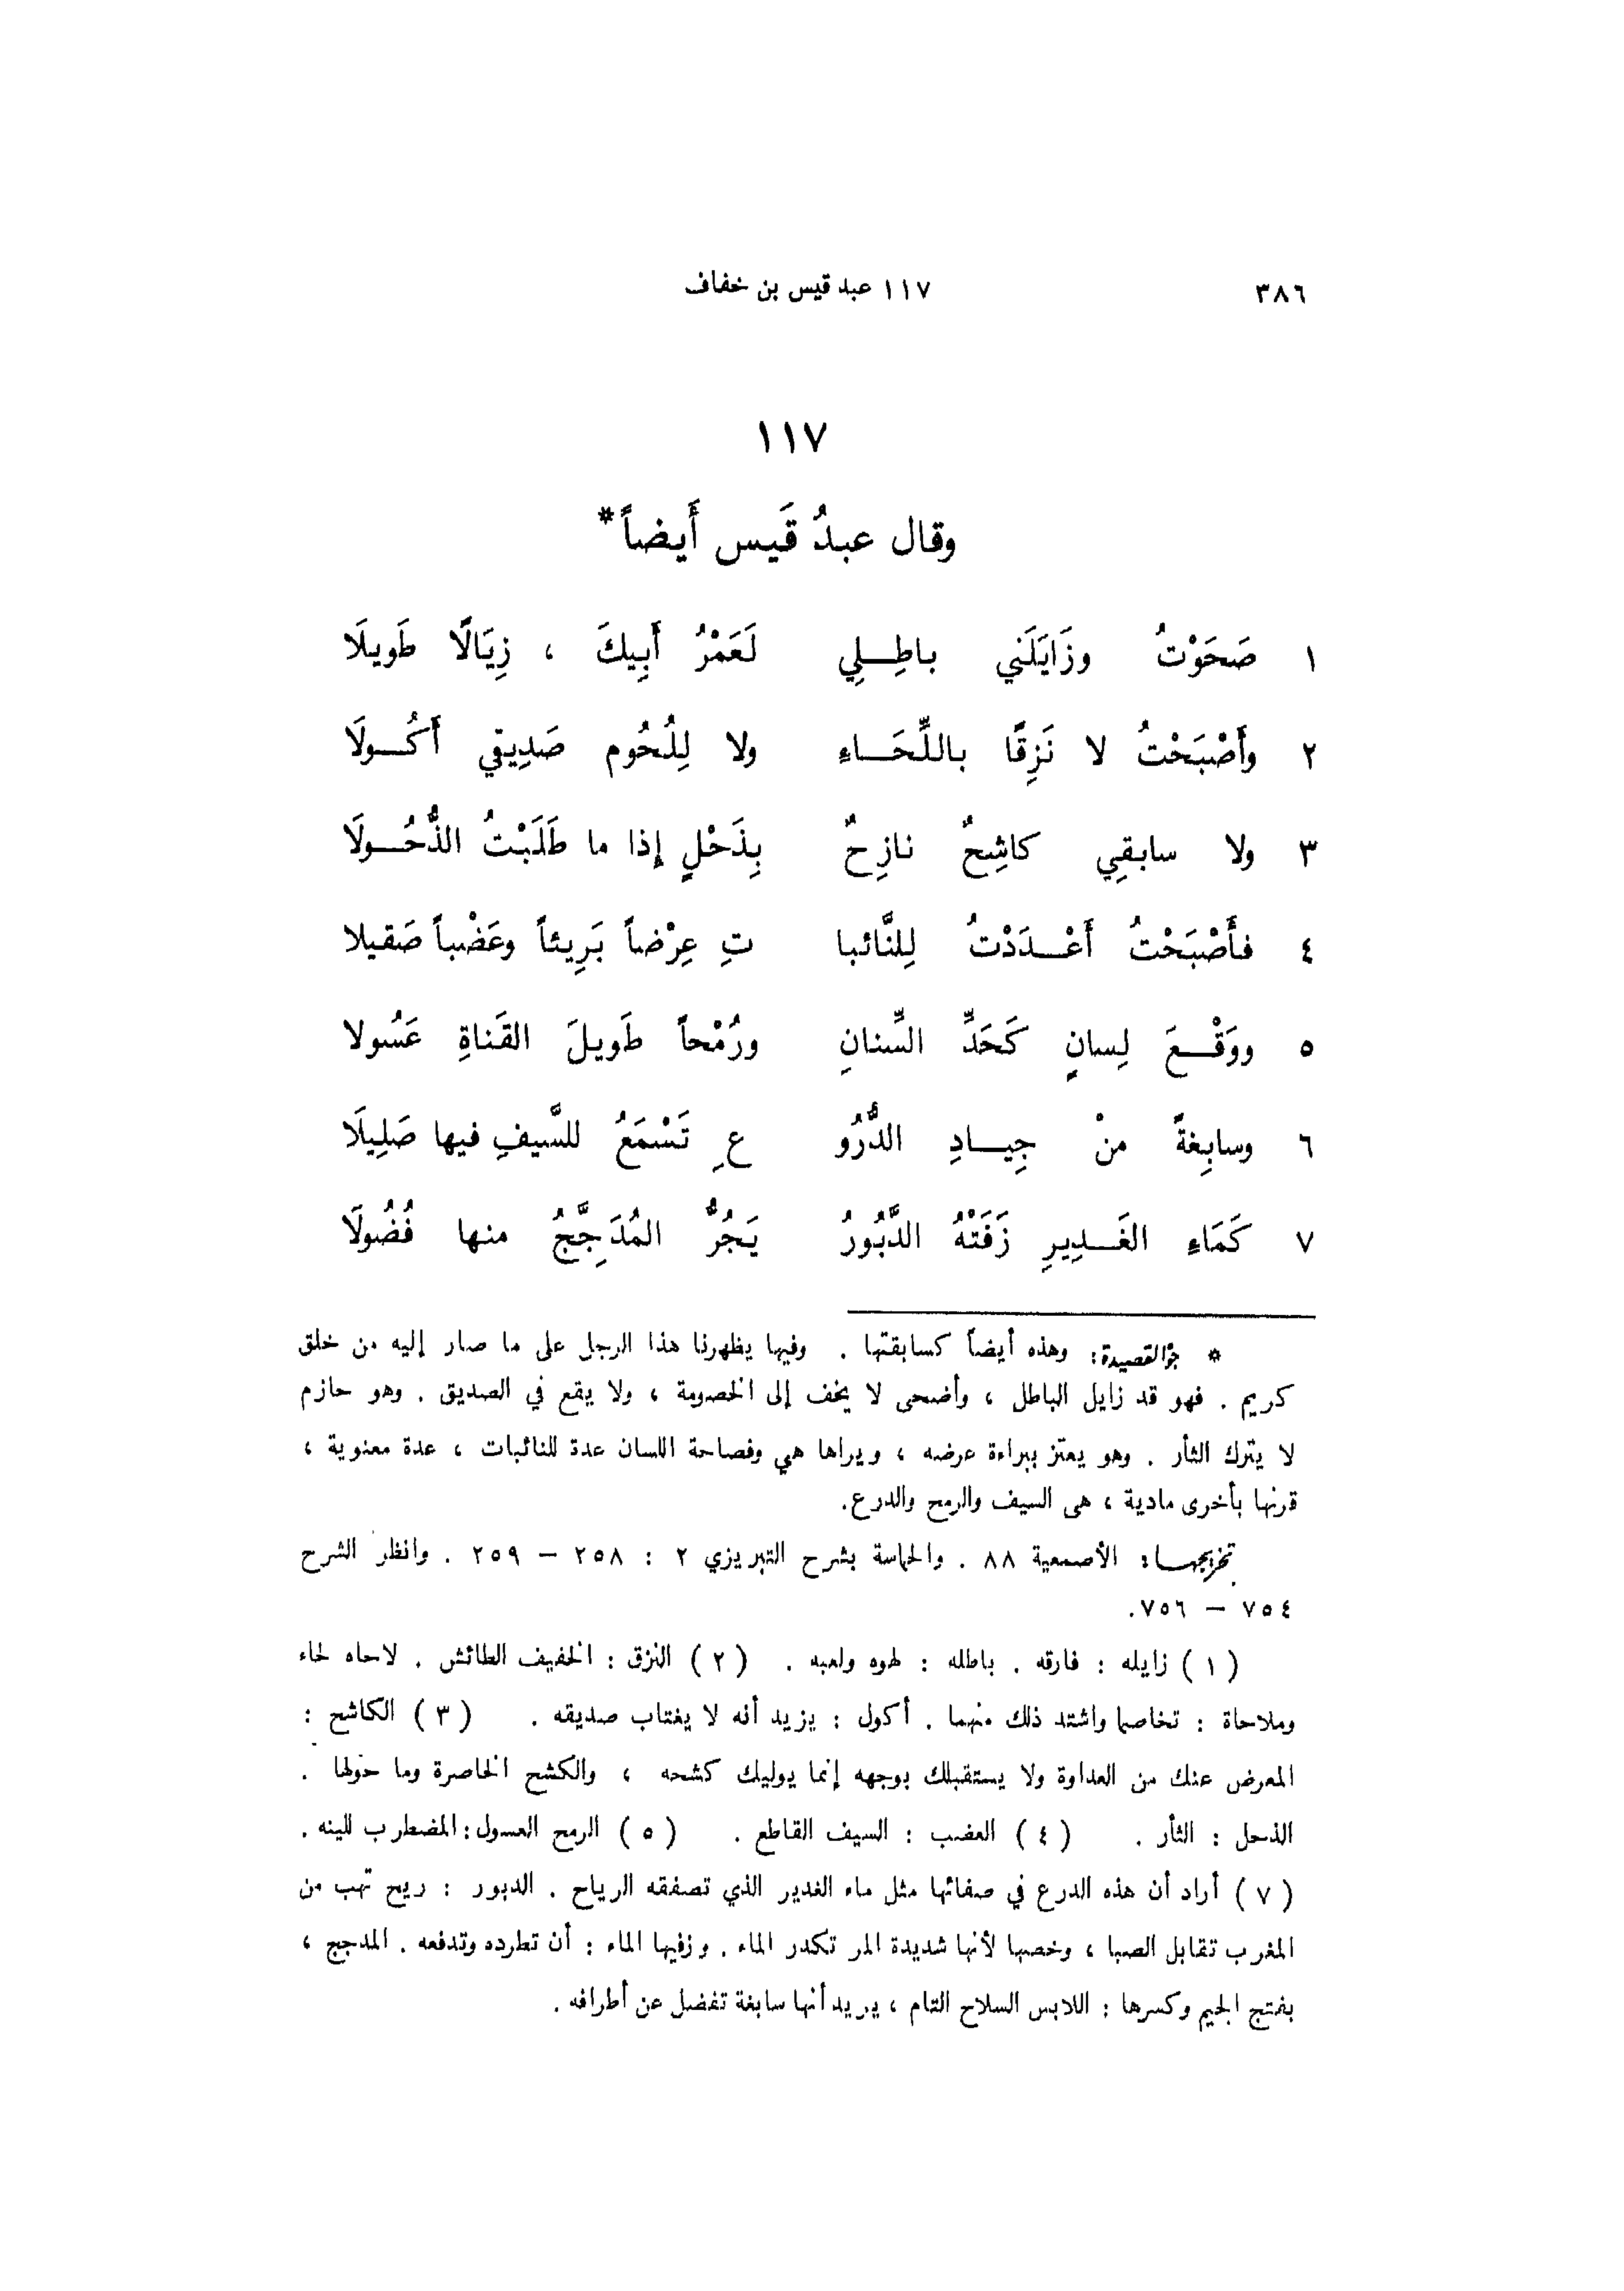 ٣٨٦ ١١٧ عبد قيس بن خفاف
١١٧
وقال عبدُ قَيس أَيضاً*
١ صَحَوْتُ وزَايَلَني باطِلِي لَعَمْرُ أَبِيكَ ، زِيَالًا طَويلَا
٢ وأَصْبَحْتُ لا نَزِقًا باللِّحَاءِ ولا لِلُحُوم صَدِيقي أَكُولَا
٣ ولا سابقِي كاشِحٌ نازِحٌ بِذَحْلٍ إذا ما طَلَبْتُ الذُّحُولَا
٤ فأَصْبَحْتُ أَعْدَدْتُ لِلنَّائبا تِ عِرْضاً بَرِيئاً وعَضْباً صَقيلا
٥ ووَقْعَ لِسانٍ كَحَدِّ السِّنانِ ورُمْحاً طَويلَ القَناةِ عَسُولا
٦ وسابِغةً منْ جِيادِ الدُّرُو عِ تَسْمَعُ للسَّيفِ فيها صَلِيلَا
٧ كَمَاءِ الغَدِيرِ زَفَتْهُ الدَّبُورُ يَجُرُّ المُدَجِّجُ منها فُضُولَا
* جوّ القصيدة: وهذه أيضاً كسابقتها . وفيها يظهرنا هذا الرجل على ما صار إليه من خلق
كريم . فهو قد زايل الباطل ، وأضحى لا يخف إلى الخصومة ، ولا يقع في الصديق . وهو حازم
لا يترك الثأر . وهو يعتز ببراءة عرضه ، ويراها هي وفصاحة اللسان عدة للنائبات ، عدة معنوية ،
قرنها بأخرى مادية ، هى السيف والرمح والدرع.
تخريجها: الأصمعية ٨٨ . والحماسة بشرح التبريزي ٢ : ٢٥٨ – ٢٥٩ . وانظر الشرح
٧٥٤ – ٧٥٦.
( ١ ) زايله : فارقه . باطله : لهوه ولعبه . ( ٢ ) النزق : الخفيف الطائش . لاحاه لحاء
وملاحاة : تخاصما واشتد ذلك منهما . أكول : يزيد أنه لا يغتاب صديقه . ( ٣ ) الكاشح :
المعرض عنك من العداوة ولا يستقبلك بوجهه إنما يوليك كشحه ، والكشح الخاصرة وما حولها .
الذحل : الثأر . ( ٤ ) العضب : السيف القاطع . ( ٥ ) الرمح العسول: المضطرب للينه .
( ٧ ) أراد أن هذه الدرع في صفائها مثل ماء الغدير الذي تصفقه الرياح . الدبور : ريح تهب من
المغرب تقابل الصبا ، وخصها لأنها شديدة المر تكدر الماء . وزفيها الماء : أن تطرده وتدفعه . المدجج ،
بفتح الجيم وكسرها : اللابس السلاح التام ، يريد أنها سابغة تفضل عن أطرافه .